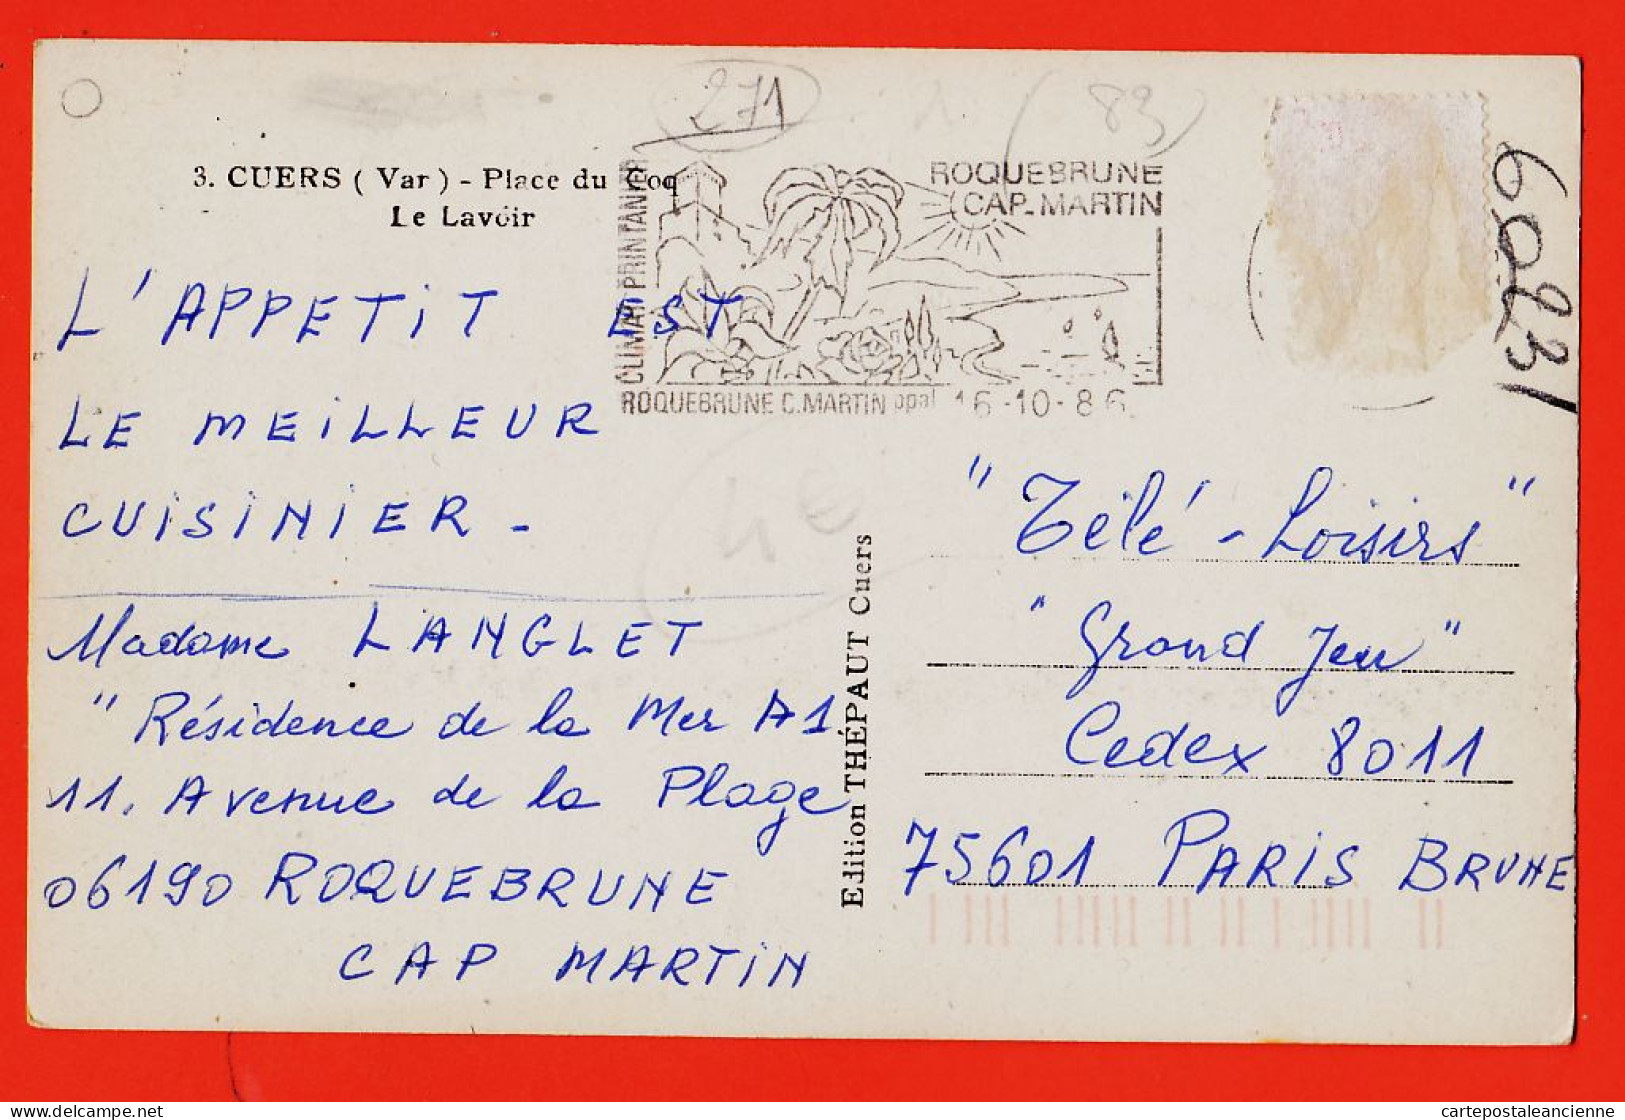 271
(83)
3. CUERS ( Var ) - Place du Coq
Le Lavoir
CLIMAT PRINTANIER
ROQUEBRUNE
CAP-MARTIN
ROQUEBRUNE C.MARTIN ppal 16-10-86
L'APPETIT EST
LE MEILLEUR
CUISINIER -
4€
Madame LANGLET
"Résidence de la Mer A1
11. Avenue de la Plage
06190 ROQUEBRUNE
CAP MARTIN
Edition THÉPAUT Cuers
"Télé-Loisirs"
"Grand Jeu"
Cedex 8011
75601 PARIS BRUNE
cartepostaleancienne
www.cartepostaleancienne.com